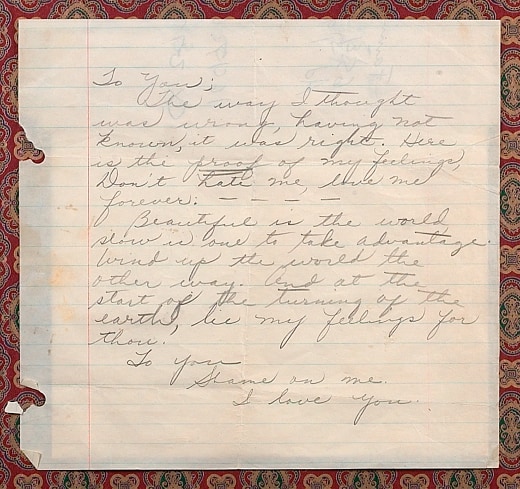 To You;
The way I thought
was wrong, having not
known, it was right. Here
is the proof of my feelings,
Don't hate me, love me
forever. — — — —
Beautiful is the world
slow is one to take advantage.
Wind up the world the
other way. And at the
start of the turning of the
earth, lie my feelings for
thou.
To you
Shame on me.
I love you.